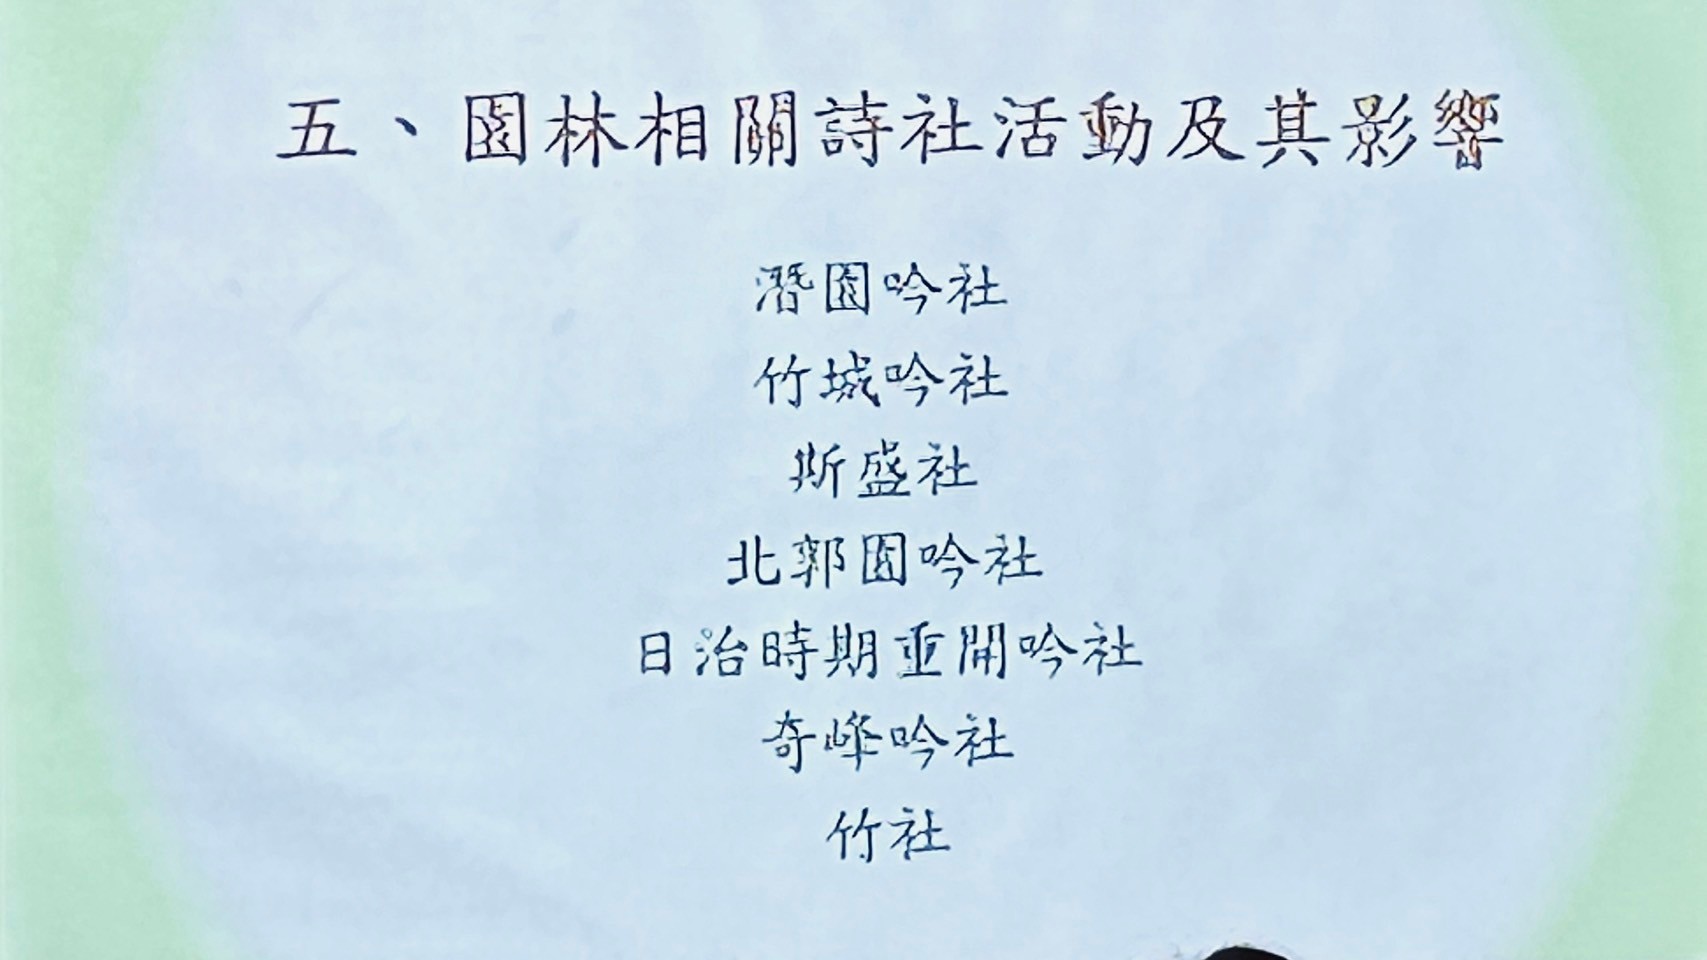 五、園林相關詩社活動及其影響
潛園吟社
竹城吟社
斯盛社
北郭園吟社
日治時期重開吟社
奇峰吟社
竹社